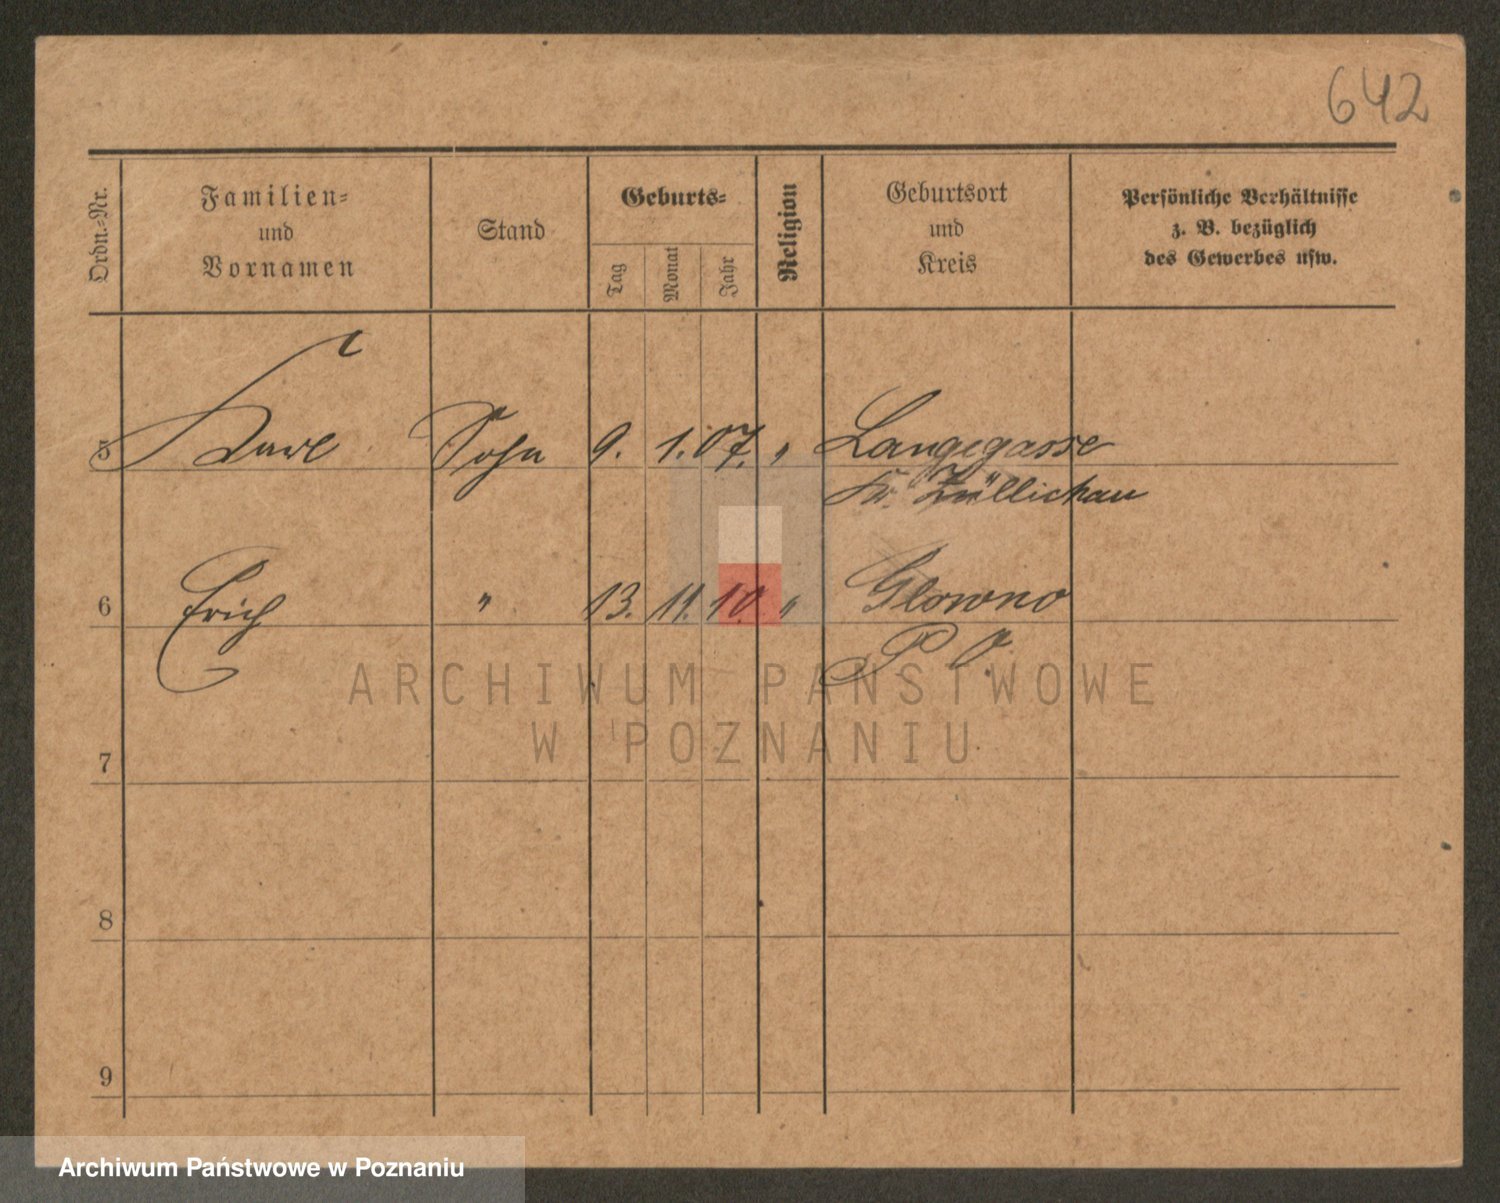 642
Ordn.-Nr.
Familien-
und
Vornamen
Stand
Geburts-
Tag
Monat
Jahr
Religion
Geburtsort
und
Kreis
Persönliche Verhältnisse
z. B. bezüglich
des Gewerbes usw.
5 Karl Sohn 9. 1. 07. " Langegasse
Kr. Züllichau
6 Erich " 13. 11. 10. " Glowno
P. O.
ARCHIWUM PAŃSTWOWE
W POZNANIU
7
8
9
Archiwum Państwowe w Poznaniu